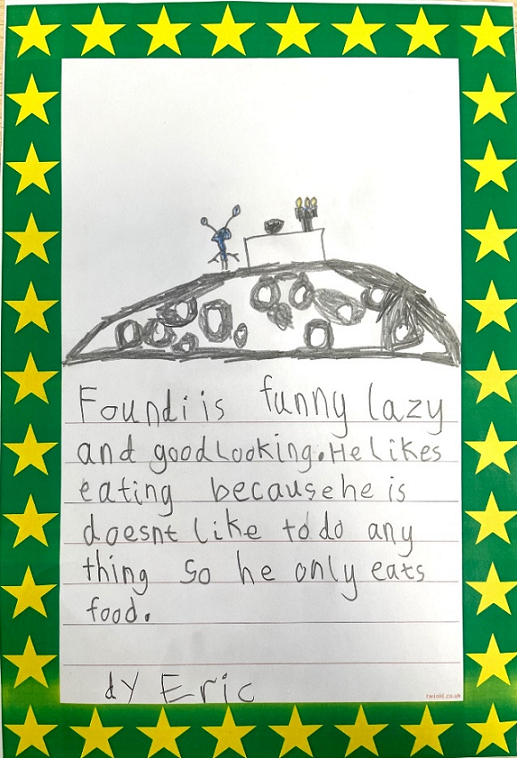 Foundi is funny lazy
and goodLooking. He Likes
eating because he is
doesnt like to do any
thing so he only eats
food.
dy Eric
twinkl.co.uk